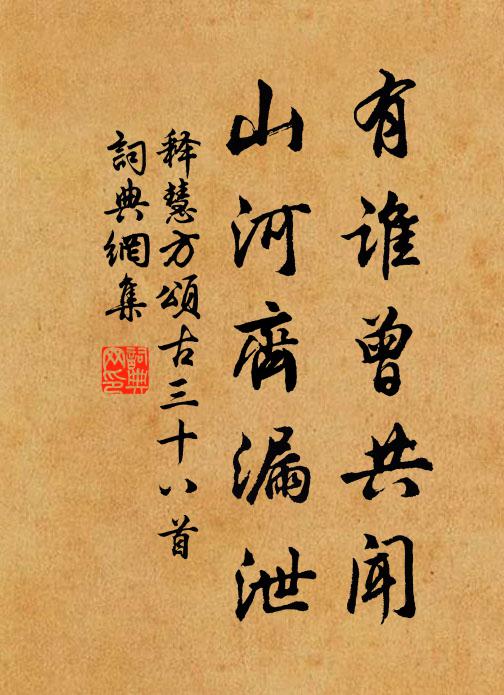 有谁曾共闻
山河齊漏泄
释慧方頌古三十八首
詞典網集
詞典網印